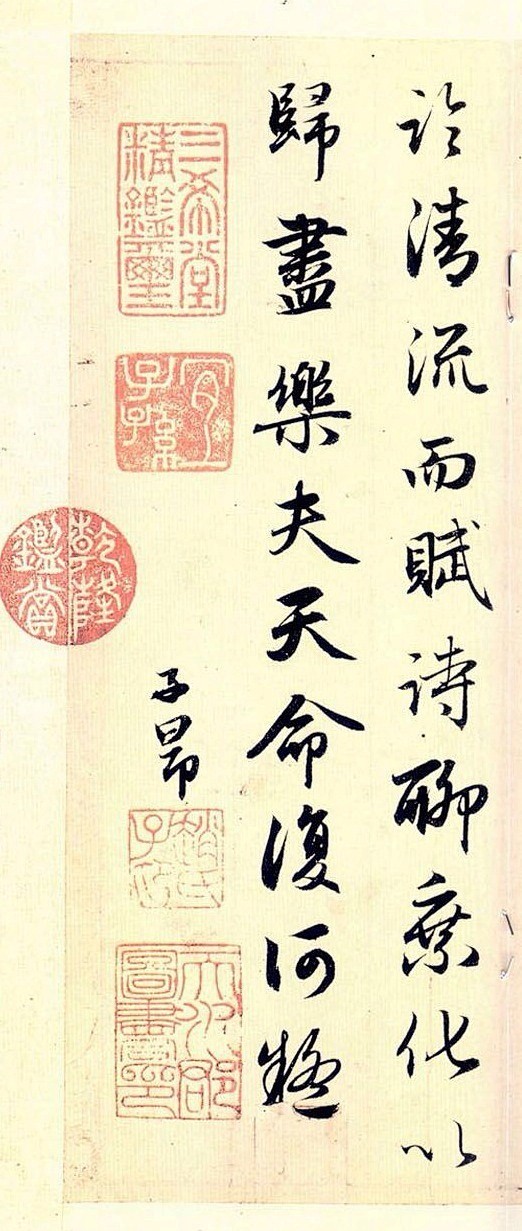 臨清流而賦詩聊乘化以
歸盡樂夫天命復何疑
三希堂
精鑑璽
宜
子孫
乾隆
鑑賞
子昂
趙氏
子昂
天水郡
圖書印